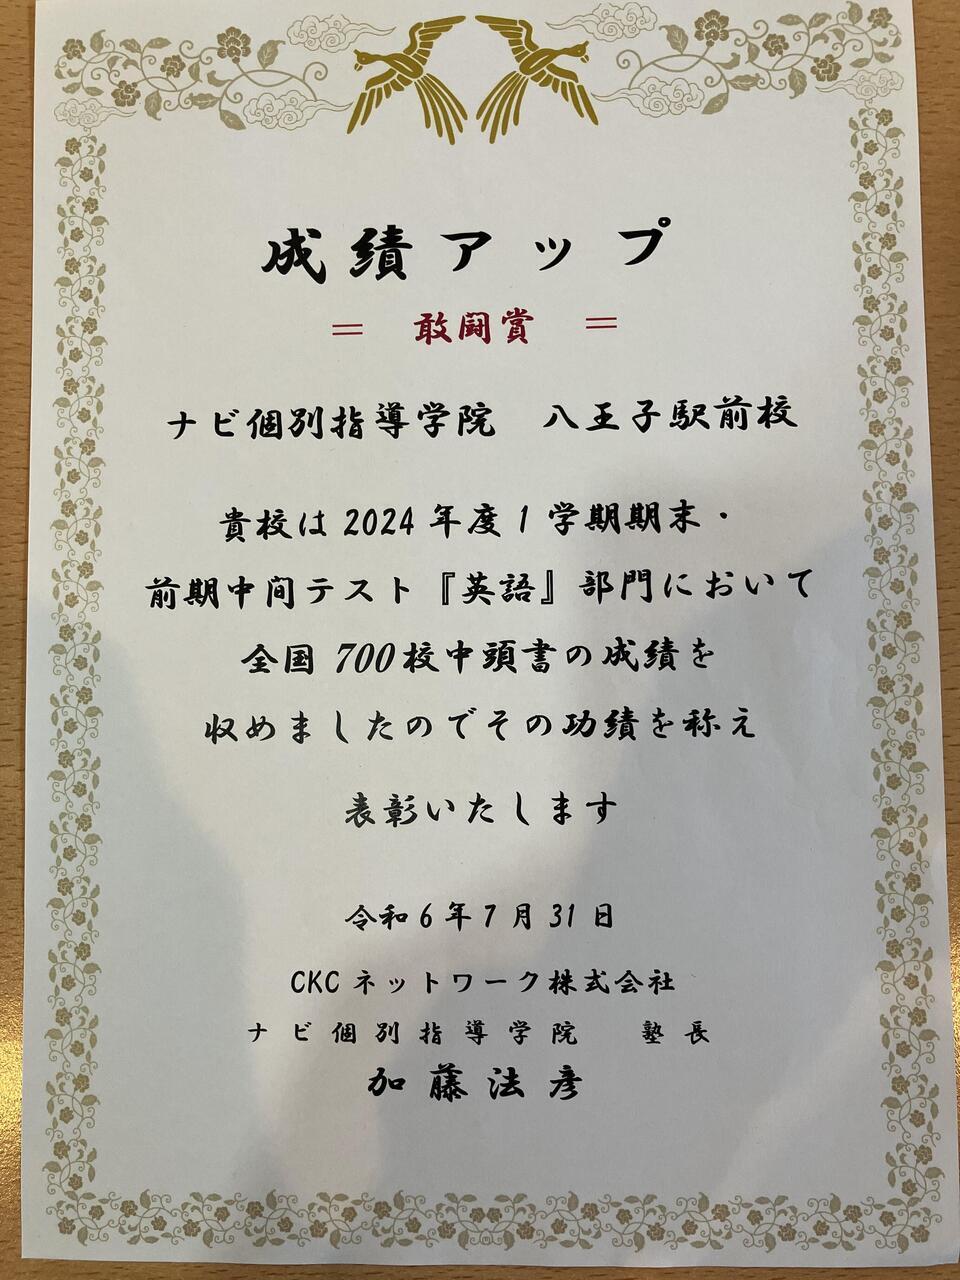 成績アップ
＝　敢闘賞　＝
ナビ個別指導学院　八王子駅前校
貴校は2024年度1学期期末・
前期中間テスト『英語』部門において
全国700校中頭書の成績を
収めましたのでその功績を称え
表彰いたします
令和6年7月31日
CKCネットワーク株式会社
ナビ個別指導学院　塾長
加藤法彦